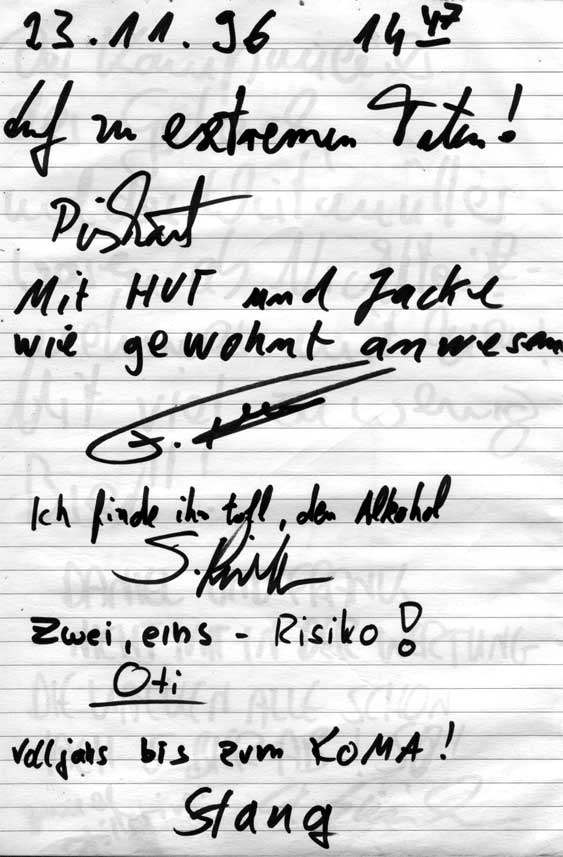 23.11.96 14 47
Auf zu extremen Taten!
Mit HUT und Jacke
wie gewohnt anwesen
Ich finde ihn toll, den Alkohol
S.
Zwei, eins - Risiko!
Oti
volljahs bis zum KOMA!
Stang